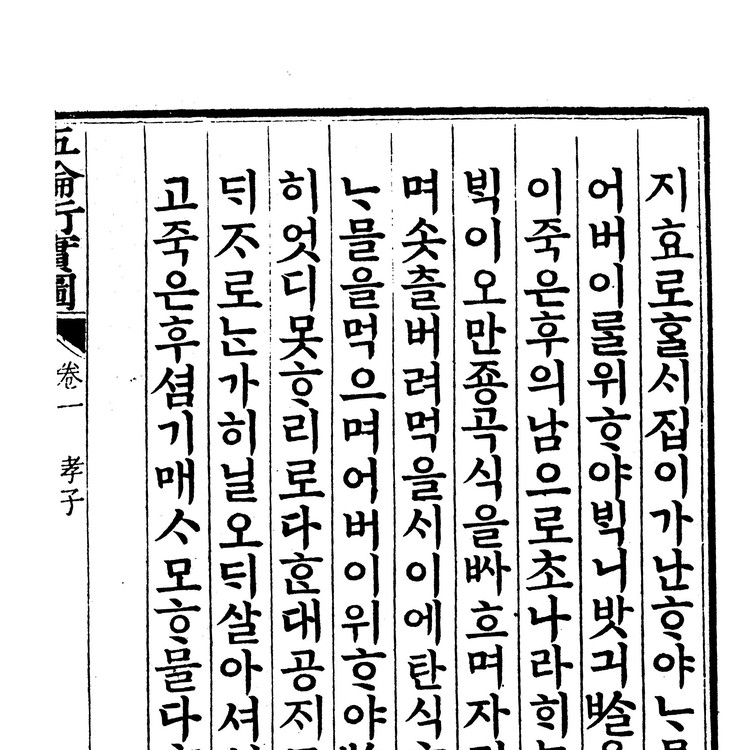 지효로홀ᄉᆡ집이가난ᄒᆞ야ᄂᆞ믈
어버이ᄅᆞᆯ위ᄒᆞ야ᄇᆡᆨ니밧긔ᄡᆞᆯ을
이죽은후의남으로초나라ᄒᆡ
ᄇᆡᆨ이오만죵곡식을ᄡᅡ흐며자
며솟츨버려먹을ᄉᆡ이에탄식
ᄂᆞ믈을먹으며어버이위ᄒᆞ야
히엇디못ᄒᆞ리로다ᄒᆞᆫ대공ᄌᆡ
ᄃᆡᄌᆞ로ᄂᆞᆫ가히닐오ᄃᆡ살아셔
고죽은후셤기매ᄉᆞ모ᄒᆞ믈다
五倫行實圖 卷一 孝子